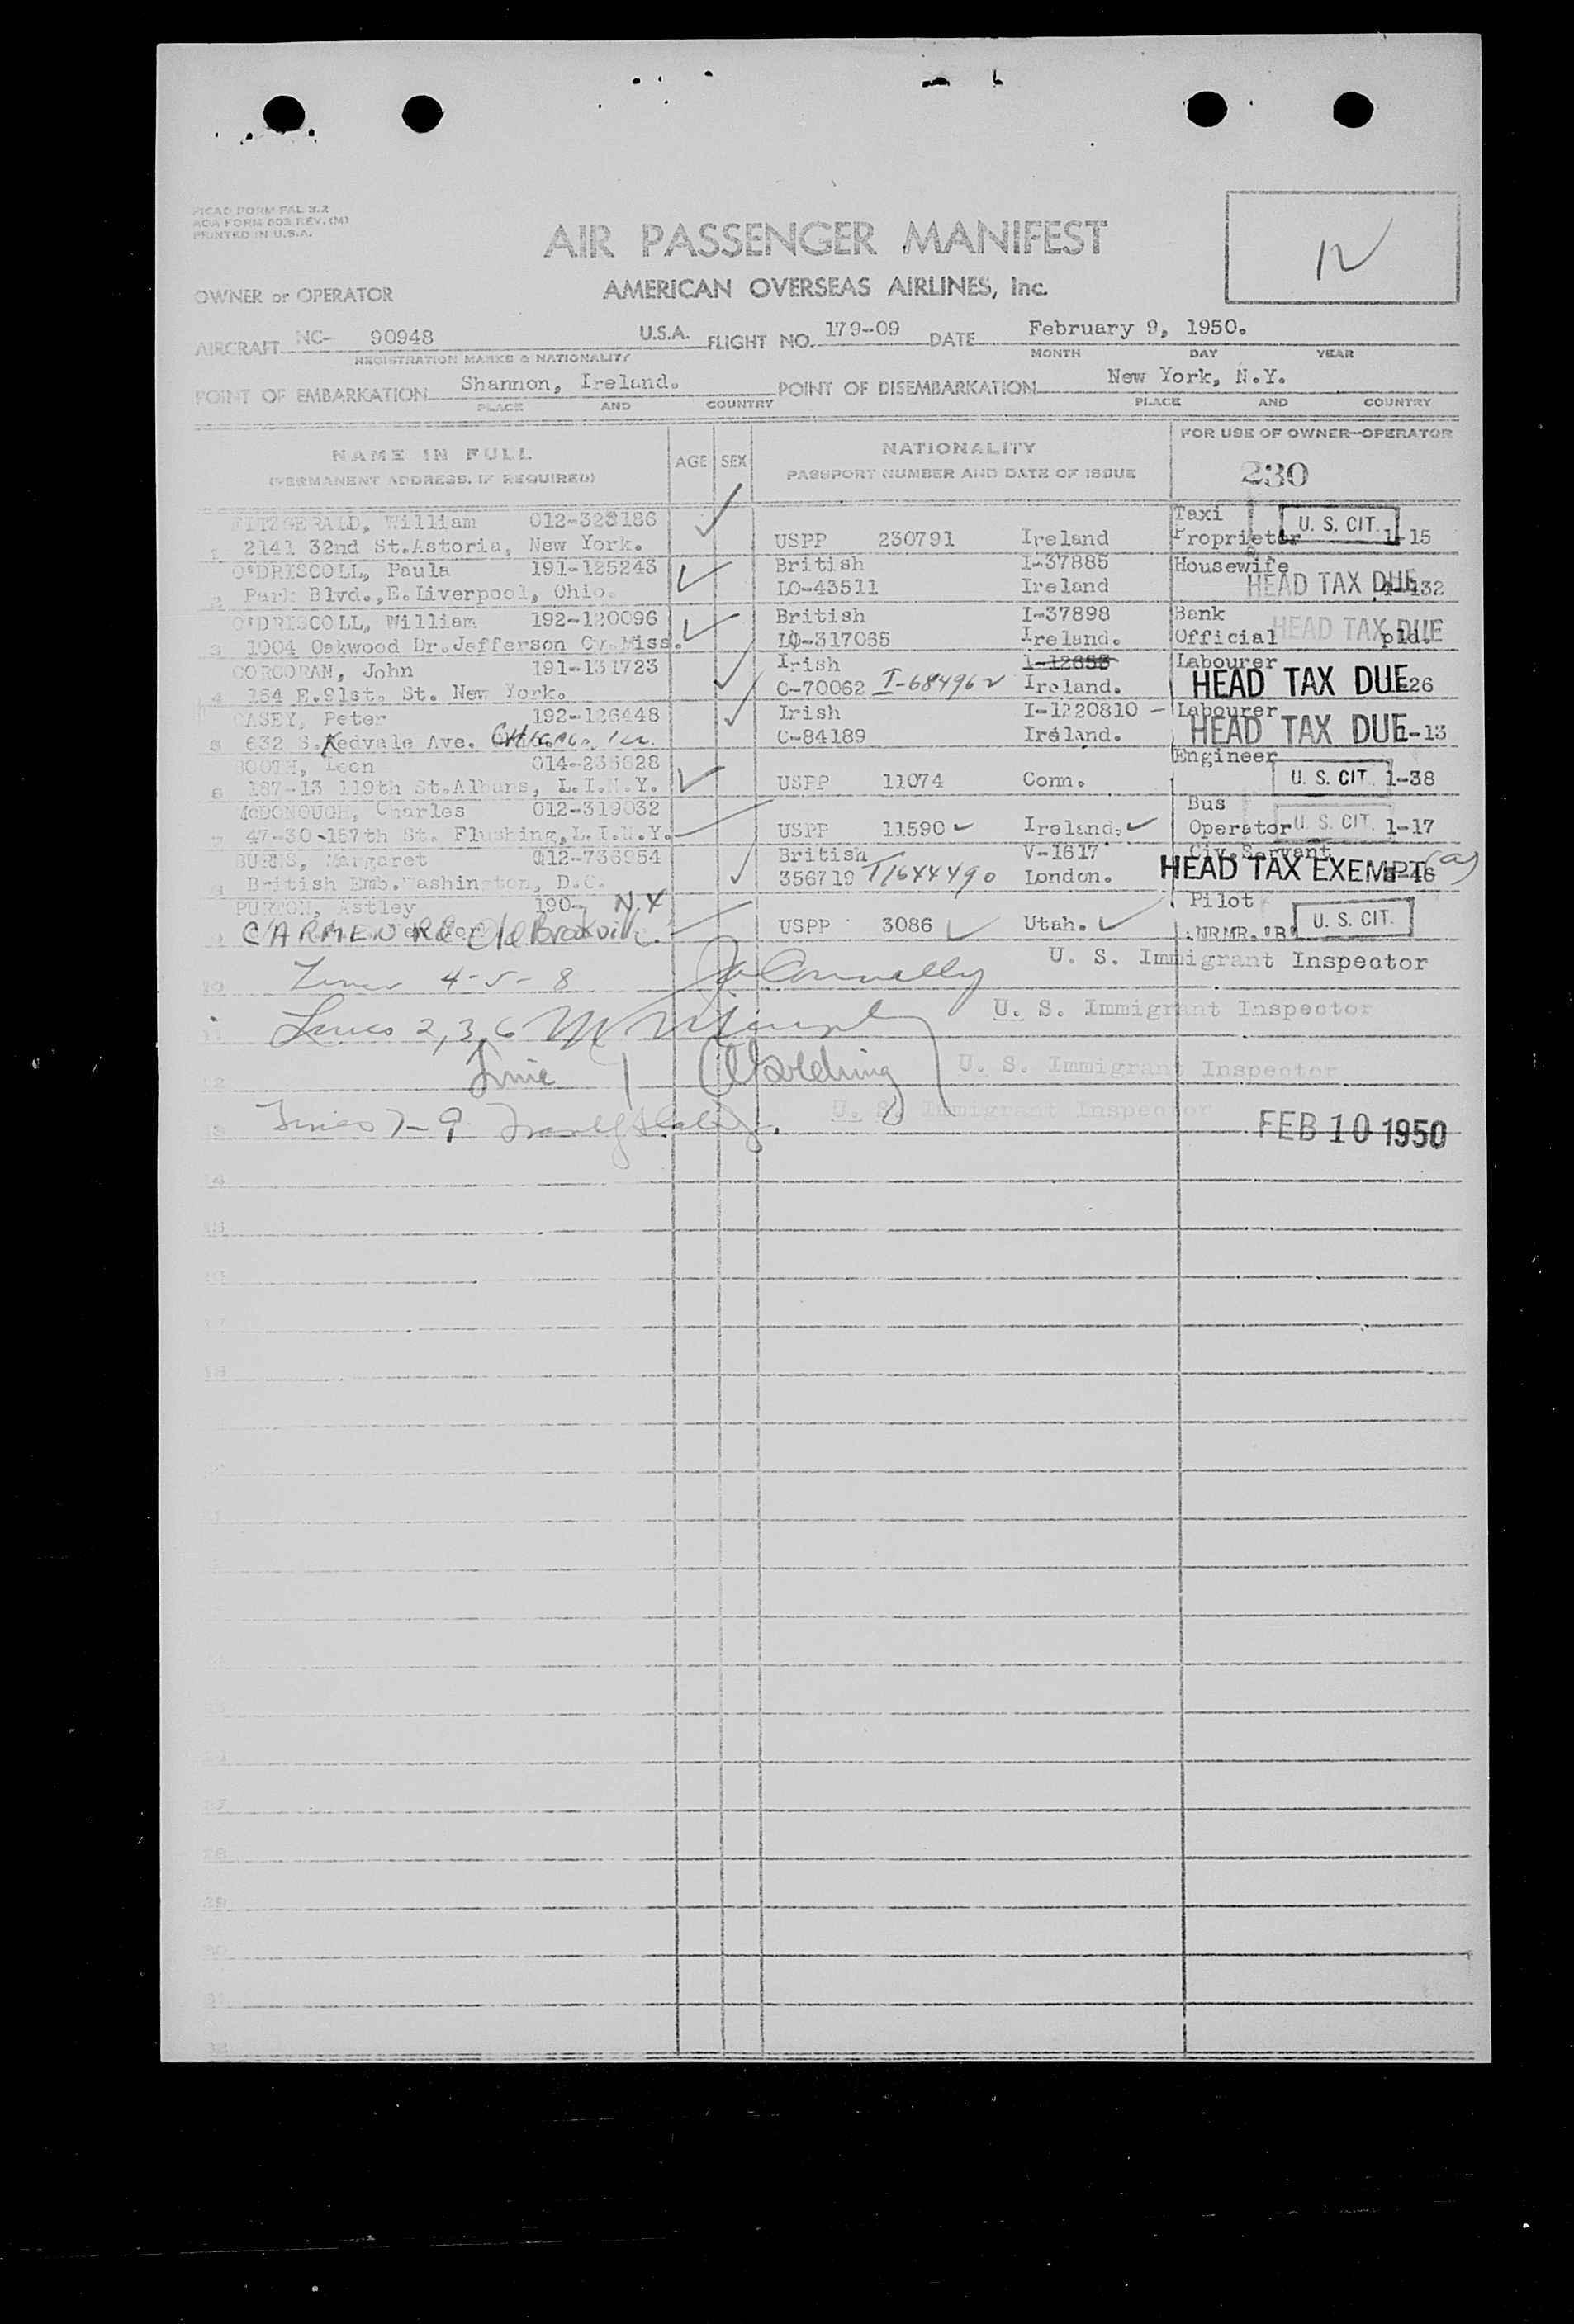 PICAO FORM FAL 3.2
AOA FORM 803 REV. (M)
PRINTED IN U.S.A.
AIR PASSENGER MANIFEST
12
OWNER or OPERATOR AMERICAN OVERSEAS AIRLINES, Inc.
AIRCRAFT NC- 90948 U.S.A. FLIGHT NO. 179-09 DATE February 9, 1950.
REGISTRATION MARKS & NATIONALITY MONTH DAY YEAR
POINT OF EMBARKATION Shannon, Ireland. POINT OF DISEMBARKATION New York, N.Y.
PLACE AND COUNTRY PLACE AND COUNTRY
NAME IN FULL AGE SEX NATIONALITY FOR USE OF OWNER-OPERATOR
(PERMANENT ADDRESS, IF REQUIRED) PASSPORT NUMBER AND DATE OF ISSUE 230
FITZGERALD, William 012-328186 Taxi U. S. CIT.
1 2141 32nd St.Astoria, New York. USPP 230791 Ireland Proprietor 1-15
O'DRISCOLL, Paula 191-125243 British I-37885 Housewife
2 Park Blvd.,E.Liverpool, Ohio. LO-43511 Ireland HEAD TAX DUE
O'DRISCOLL, William 192-120096 British I-37898 Bank
3 1004 Oakwood Dr.Jefferson Cy.Miss. LO-317065 Ireland. Official HEAD TAX DUE
CORCORAN, John 191-131723 Irish 1-12653 Labourer
4 154 E.91st. St. New York. C-70062 I-684962 Ireland. HEAD TAX DUE 26
CASEY, Peter 192-126448 Irish I-1220810 Labourer
5 632 S.Kedvale Ave. CHICAGO. ILL. C-84189 Ireland. HEAD TAX DUE -13
BOOTH, Leon 014-235628 Engineer
6 187-13 119th St.Albans, L.I.N.Y. USPP 11074 Conn. U. S. CIT. 1-38
McDONOUGH, Charles 012-319032 Bus
7 47-30-157th St. Flushing,L.I.N.Y. USPP 11590 Ireland. Operator U. S. CIT. 1-17
BURNS, Margaret 012-736954 British V-1617 Civ.Servant
8 British Emb.Washington, D.C. 356719 T1644490 London. HEAD TAX EXEMPT (a)
PURTON, Astley 190- N.Y. Pilot
9 CARMEN RD Old Brookville USPP 3086 Utah. NRMR."B" U. S. CIT.
10 Lines 4-5-8 J Connolly U. S. Immigrant Inspector
11 Lines 2,3,6 U. S. Immigrant Inspector
12 Line 1 Golding U. S. Immigrant Inspector
13 Lines 7-9 U. S. Immigrant Inspector
FEB 10 1950
14
15
16
17
18
28
29
30
31
32